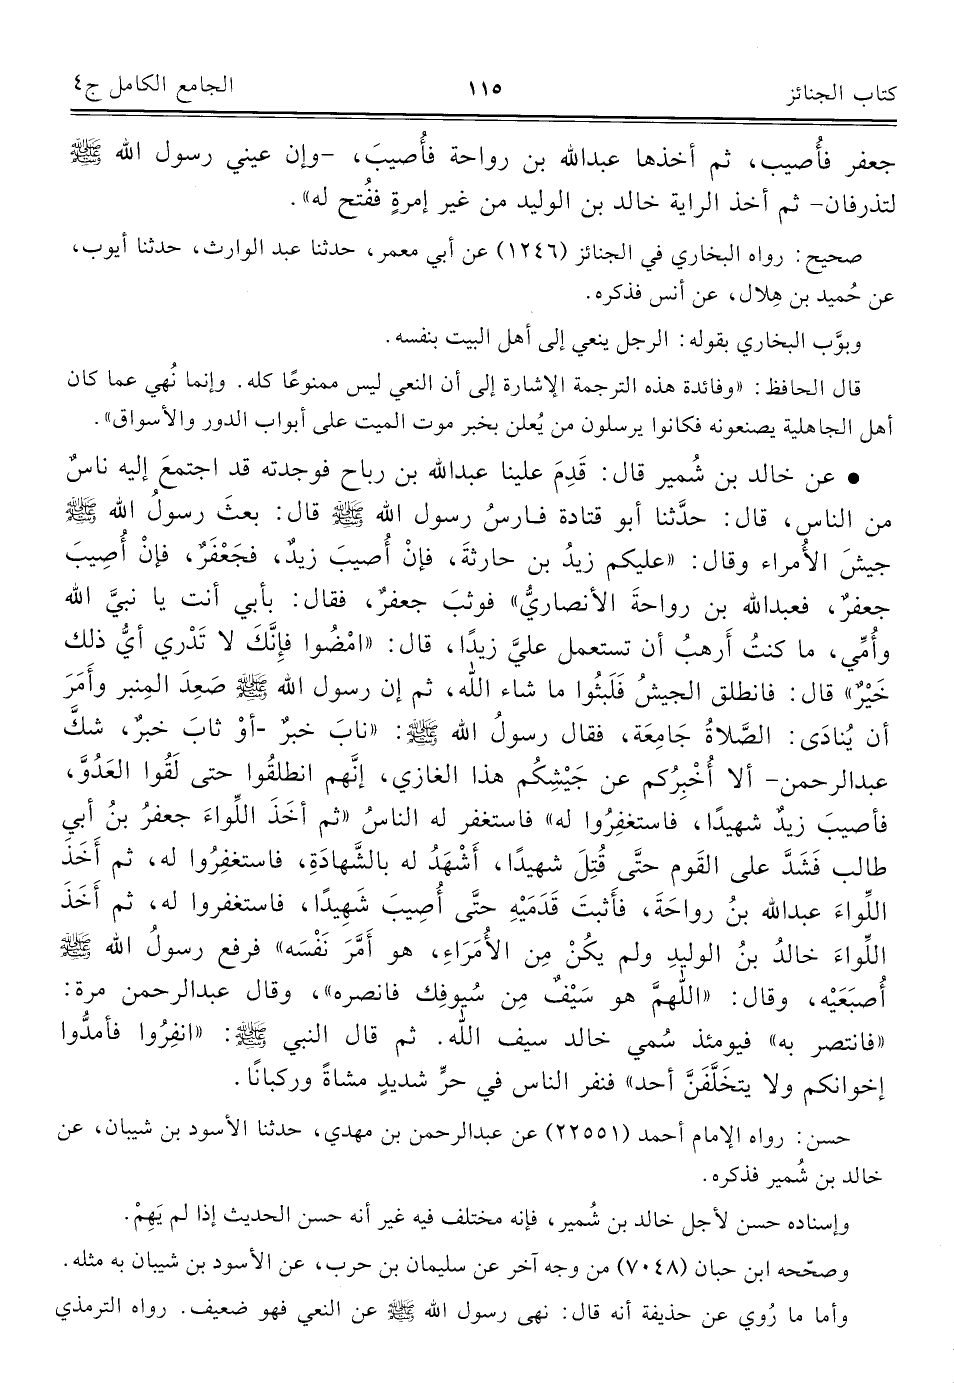 كتاب الجنائز ١١٥ الجامع الكامل ج٤
جعفر فأُصيب، ثم أخذها عبدالله بن رواحة فأُصيبَ، -وإن عيني رسول الله ﷺ
لتذرفان- ثم أخذ الراية خالد بن الوليد من غير إمرةٍ ففُتح له».
صحيح: رواه البخاري في الجنائز (١٢٤٦) عن أبي معمر، حدثنا عبد الوارث، حدثنا أيوب،
عن حُميد بن هِلال، عن أنس فذكره.
وبوَّب البخاري بقوله: الرجل ينعي إلى أهل البيت بنفسه.
قال الحافظ: «وفائدة هذه الترجمة الإشارة إلى أن النعي ليس ممنوعًا كله. وإنما نُهي عما كان
أهل الجاهلية يصنعونه فكانوا يرسلون من يُعلن بخبر موت الميت على أبواب الدور والأسواق».
• عن خالد بن شُمير قال: قَدِمَ علينا عبدالله بن رباح فوجدته قد اجتمعَ إليه ناسٌ
من الناس، قال: حدَّثنا أبو قتادة فارسُ رسول الله ﷺ قال: بعثَ رسولُ الله ﷺ
جيشَ الأمراء وقال: «عليكم زيدُ بن حارثةَ، فإنْ أُصيبَ زيدٌ، فجَعْفَرٌ، فإنْ أُصِيبَ
جعفرٌ، فعبدالله بن رواحةَ الأنصاريُّ» فوثبَ جعفرٌ، فقال: بأبي أنت يا نبيَّ الله
وأُمِّي، ما كنتُ أَرهبُ أن تستعمل عليَّ زيدًا، قال: «امْضُوا فإِنَّكَ لا تَدْري أيُّ ذلك
خَيْرٌ» قال: فانطلق الجيشُ فَلَبثُوا ما شاء الله، ثم إن رسول الله ﷺ صَعِدَ المِنبر وأَمَرَ
أن يُنادَى: الصَّلاةُ جَامِعَة، فقال رسولُ الله ﷺ: «نابَ خبرٌ -أوْ ثابَ خبرٌ، شكَّ
عبدالرحمن- ألا أُخْبِرُكم عن جَيْشِكُم هذا الغازي، إنَّهم انطلقُوا حتى لَقُوا العَدُوَّ،
فأصيبَ زيدٌ شهيدًا، فاستغفِرُوا له» فاستغفر له الناسُ «ثم أخَذَ اللِّواءَ جعفرُ بنُ أبي
طالب فَشَدَّ على القَوم حتَّى قُتِلَ شهيدًا، أَشْهَدُ له بالشَّهادَةِ، فاستغفِرُوا له، ثم أَخَذَ
اللِّواءَ عبدالله بنُ رواحَةَ، فأثبتَ قَدَمَيْهِ حتَّى أُصِيبَ شَهِيدًا، فاستغفروا له، ثم أَخَذَ
اللِّواءَ خالدُ بنُ الوليدِ ولم يكُنْ مِن الأُمَرَاءِ، هو أَمَّرَ نَفْسَه» فرفع رسولُ الله ﷺ
أُصبَعَيْه، وقال: «اللَّهمَّ هو سَيْفٌ مِن سُيوفِك فانصره»، وقال عبدالرحمن مرة:
«فانتصر به» فيومئذ سُمي خالد سيف الله. ثم قال النبي ﷺ: «انفِرُوا فأمدُّوا
إخوانكم ولا يتخَلَّفَنَّ أحد» فنفر الناس في حرٍّ شديدٍ مشاةً وركبانًا.
حسن: رواه الإمام أحمد (٢٢٥٥١) عن عبدالرحمن بن مهدي، حدثنا الأسود بن شيبان، عن
خالد بن شُمير فذكره.
وإسناده حسن لأجل خالد بن شُمير، فإنه مختلف فيه غير أنه حسن الحديث إذا لم يَهِمْ.
وصحّحه ابن حبان (٧٠٤٨) من وجه آخر عن سليمان بن حرب، عن الأسود بن شيبان به مثله.
وأما ما رُوي عن حذيفة أنه قال: نهى رسول الله ﷺ عن النعي فهو ضعيف. رواه الترمذي